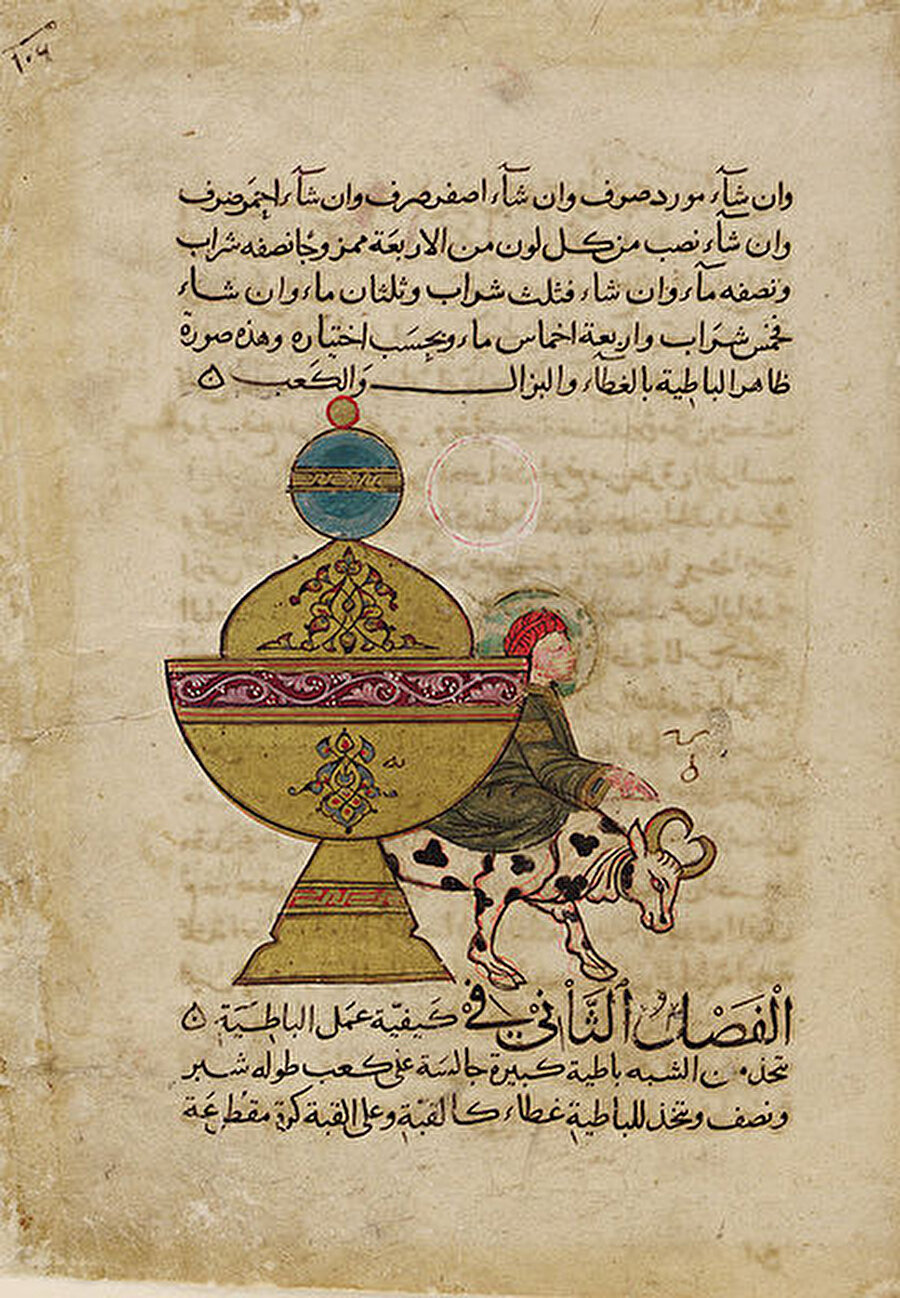 ١٠٦
وان شآء مورد صرف وان شآء اصفر صرف وان شآء احمر صرف
وان شآء نصب من كل لون من الاربعة ممزوجًا نصفه شراب
ونصفه مآء وان شاء فثلث شراب وثلثان ماء وان شاء
فخمس شراب واربعة اخماس ماء وبحسب اختياره وهذه صورة
ظاهر الباطية بالغطاء والبزال والكعب ن
الفصل الثاني في كيفية عمل الباطية ن
تتخذ من الشبه باطية كبيرة جالسة على كعب طوله شبر
ونصف وتتخذ للباطية غطاء كالقبة وعلى القبة كرة مقطعة